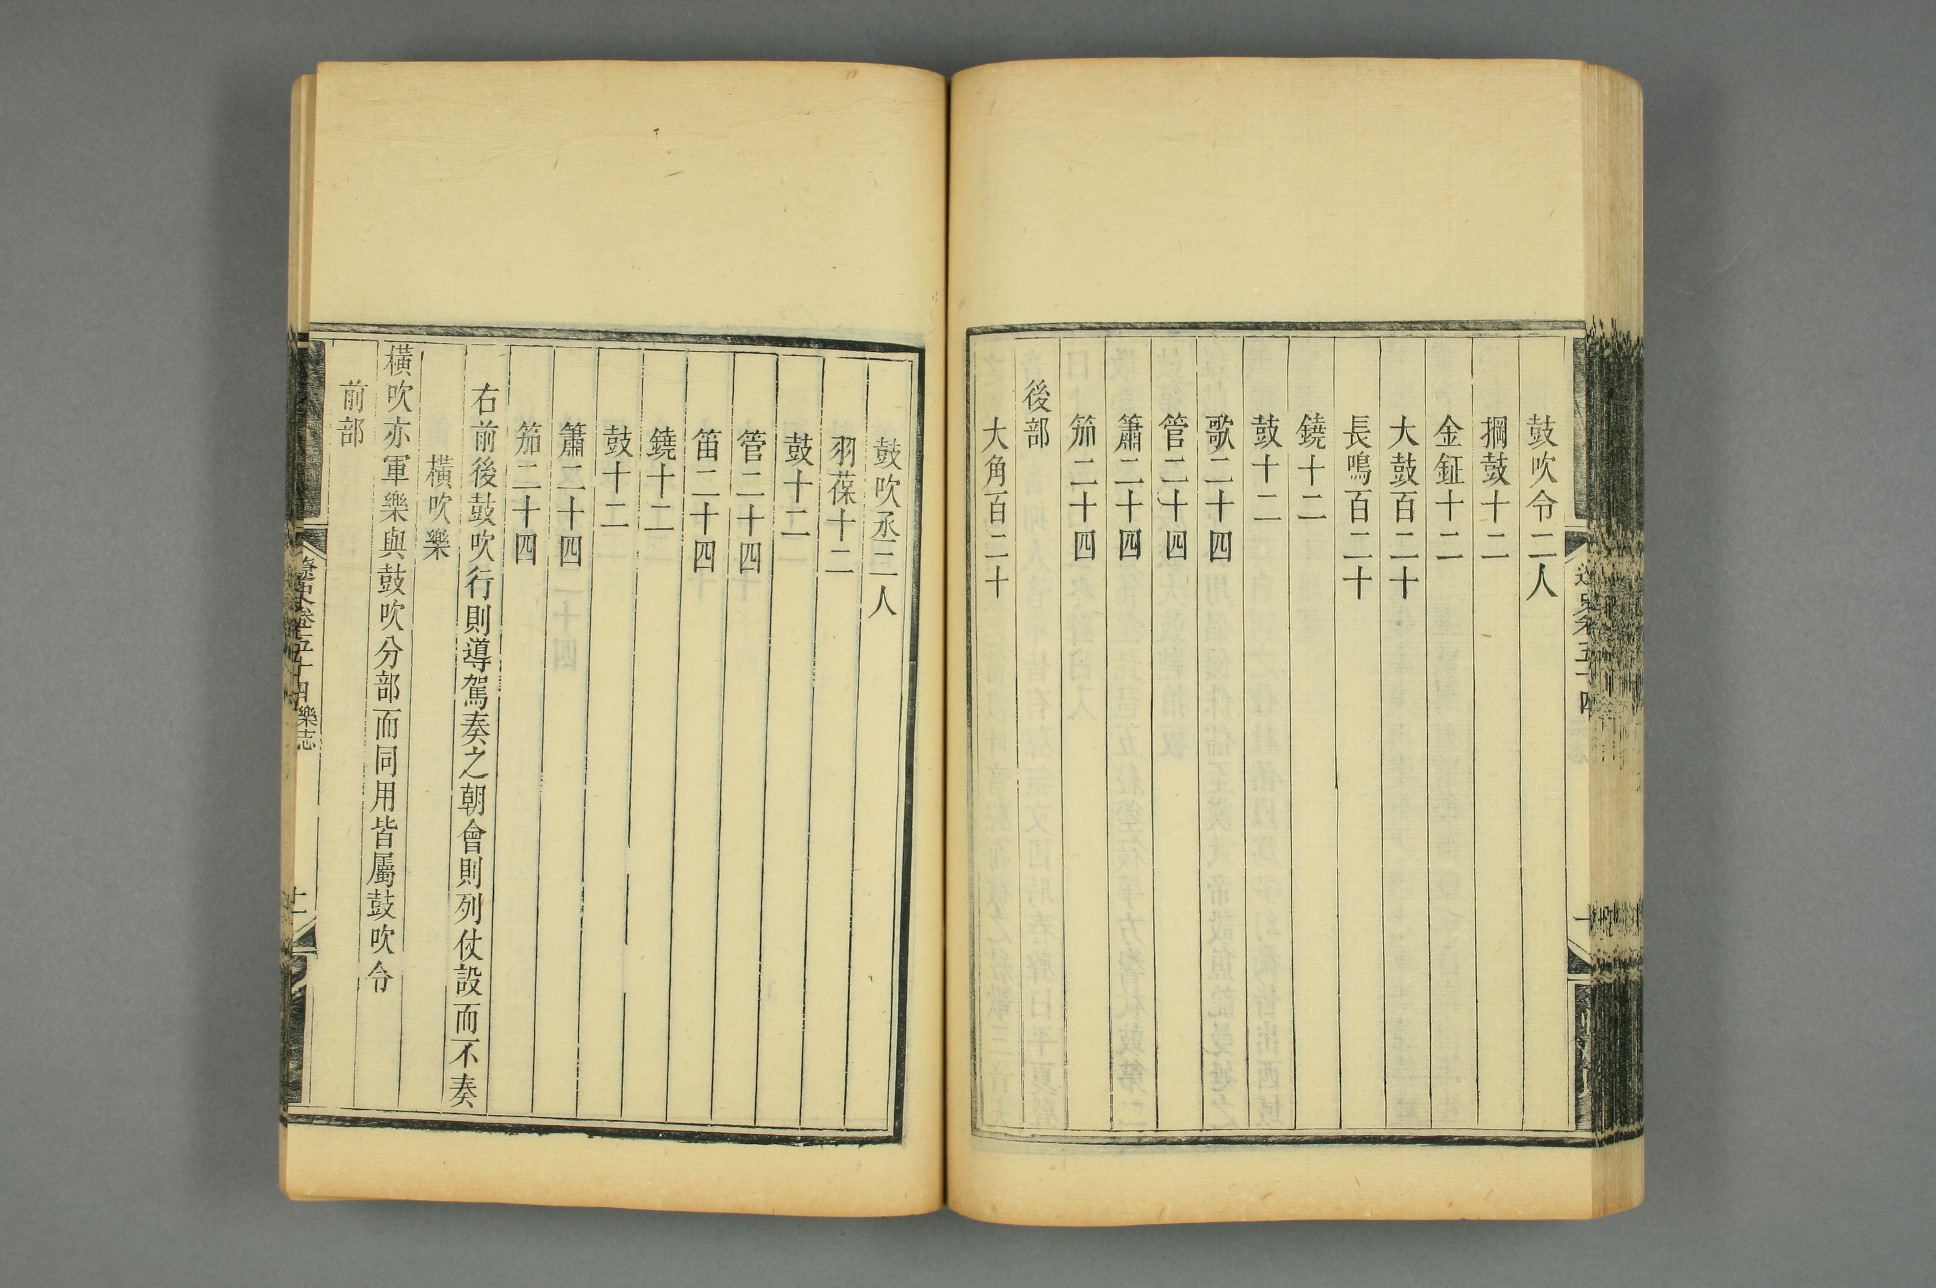 鼓吹令二人
掆鼓十二
金鉦十二
大鼓百二十
長鳴百二十
鐃十二
鼓十二
歌二十四
管二十四
簫二十四
笳二十四
後部
大角百二十
鼓吹丞二人
羽葆十二
鼓十二
管二十四
笛二十四
鐃十二
鼓十二
簫二十四
笳二十四
右前後鼓吹行則導駕奏之朝會則列仗設而不奏
橫吹樂
橫吹亦軍樂與鼓吹分部而同用皆屬鼓吹令
前部
遼史卷五十四 樂志